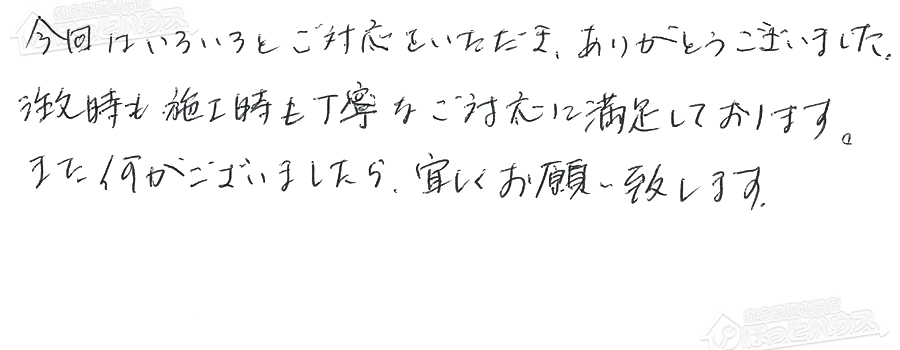 今回はいろいろとご対応をいただき、ありがとうございました。
注文時も施工時も丁寧なご対応に満足しております。
また何かございましたら、宜しくお願い致します。
住宅設備専門店
ほっとハウス